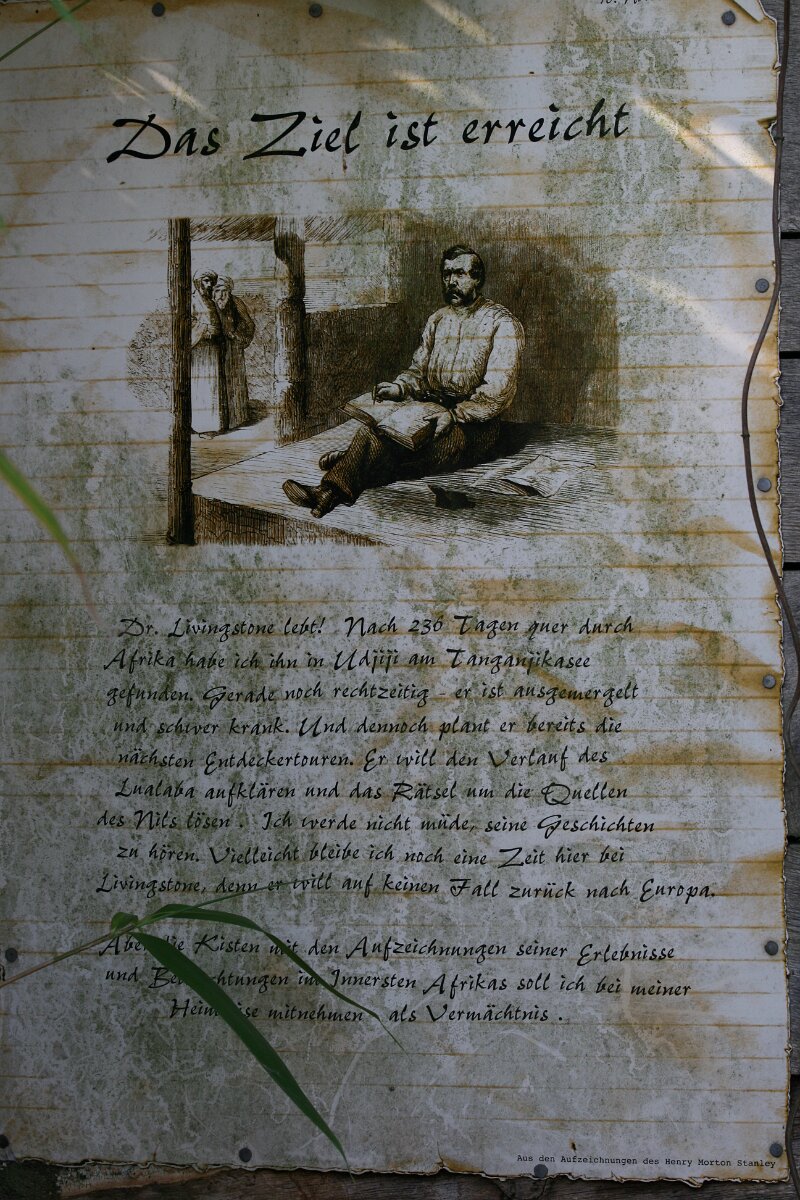 Das Ziel ist erreicht
Dr. Livingstone lebt! Nach 236 Tagen quer durch
Afrika habe ich ihn in Udjiji am Tanganjikasee
gefunden. Gerade noch rechtzeitig - er ist ausgemergelt
und schwer krank. Und dennoch plant er bereits die
nächsten Entdeckertouren. Er will den Verlauf des
Lualaba aufklären und das Rätsel um die Quellen
des Nils lösen. Ich werde nicht müde, seine Geschichten
zu hören. Vielleicht bleibe ich noch eine Zeit hier bei
Livingstone, denn er will auf keinen Fall zurück nach Europa.
Aber die Kisten mit den Aufzeichnungen seiner Erlebnisse
und im Innersten Afrikas soll ich bei meiner
mitnehmen - als Vermächtnis.
Aus den Aufzeichnungen des Henry Morton Stanley